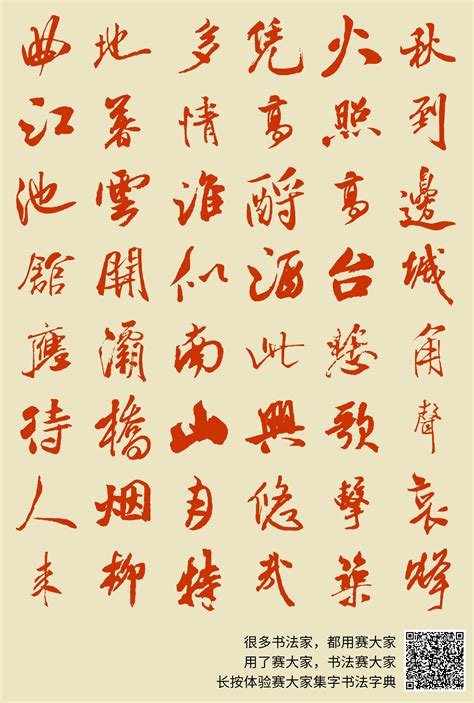 秋到邊城角聲哀烽
火照高台悲歌擊築
凭高酹酒此興悠哉
多情誰似南山月特
地暮雲開灞橋烟柳
曲江池館應待人来
很多书法家，都用赛大家
用了赛大家，书法赛大家
长按体验赛大家集字书法字典